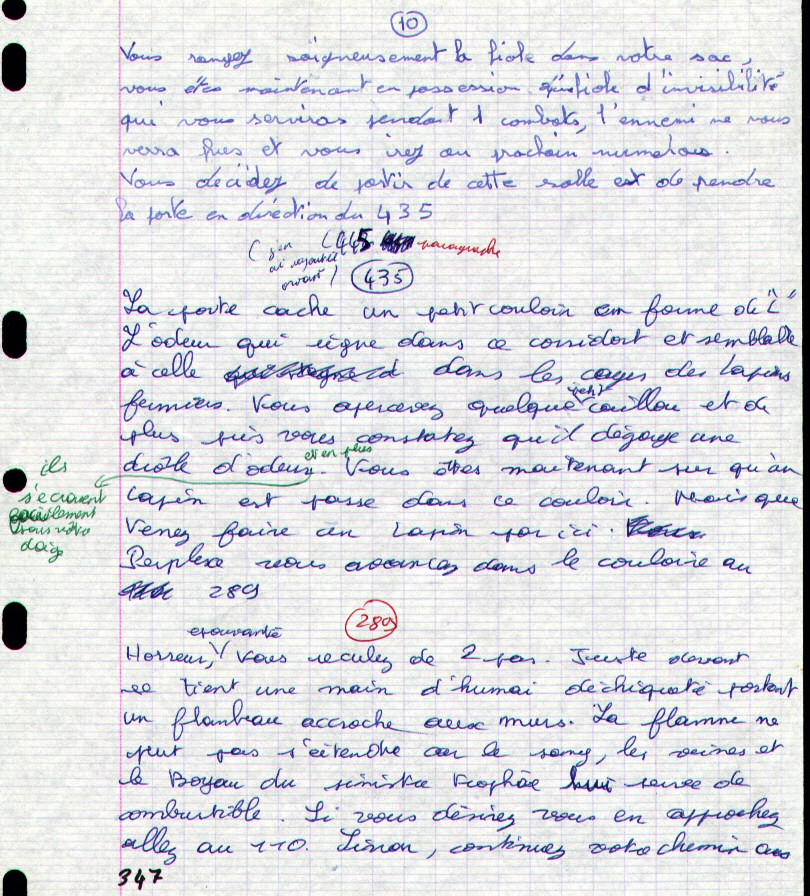 10
Vous rangez soigneusement la fiole dans votre sac,
vous êtes maintenant en possession fiole d'invisibilité
qui vous serviras pendant 1 combats, l'ennemi ne vous
verra pues et vous irez au prochain numerous.
Vous decidez de partir de cette salle est de prendre
la porte en direction du 435
(j'en ai rajouté avant) (445 paragraphe
435
La porte cache un petit couloir em forme de "L"
L'odeur qui règne dans ce corridort et semblable
à celle dans les cages des Lapins
fermiers. Vous apercevez quelque petit caillou et de
plus près vous constatez qu'il dégage une
drôle d'odeur. et en plus Vous êtes maintenant sur qu'un
ils s'écrasent facilement sous votre doig
Lapin est passe dans ce couloir. Mais que
Venez faire un Lapin par ici.
Perplexe vous avancez dans le couloire au
289
289
Horreur, épouvanté Vous reculez de 2 pas. Juste devant
se tient une main d'humai déchiqueté portant
un flanbeau accroche aux murs. La flamne ne
peut pas s'éteindre car le sang, les veines et
le Boyau du sinistre trophée serve de
combustible. Si vous désirez vous en approchez
allez au 110. Sinon, continuez votre chemin aus
347